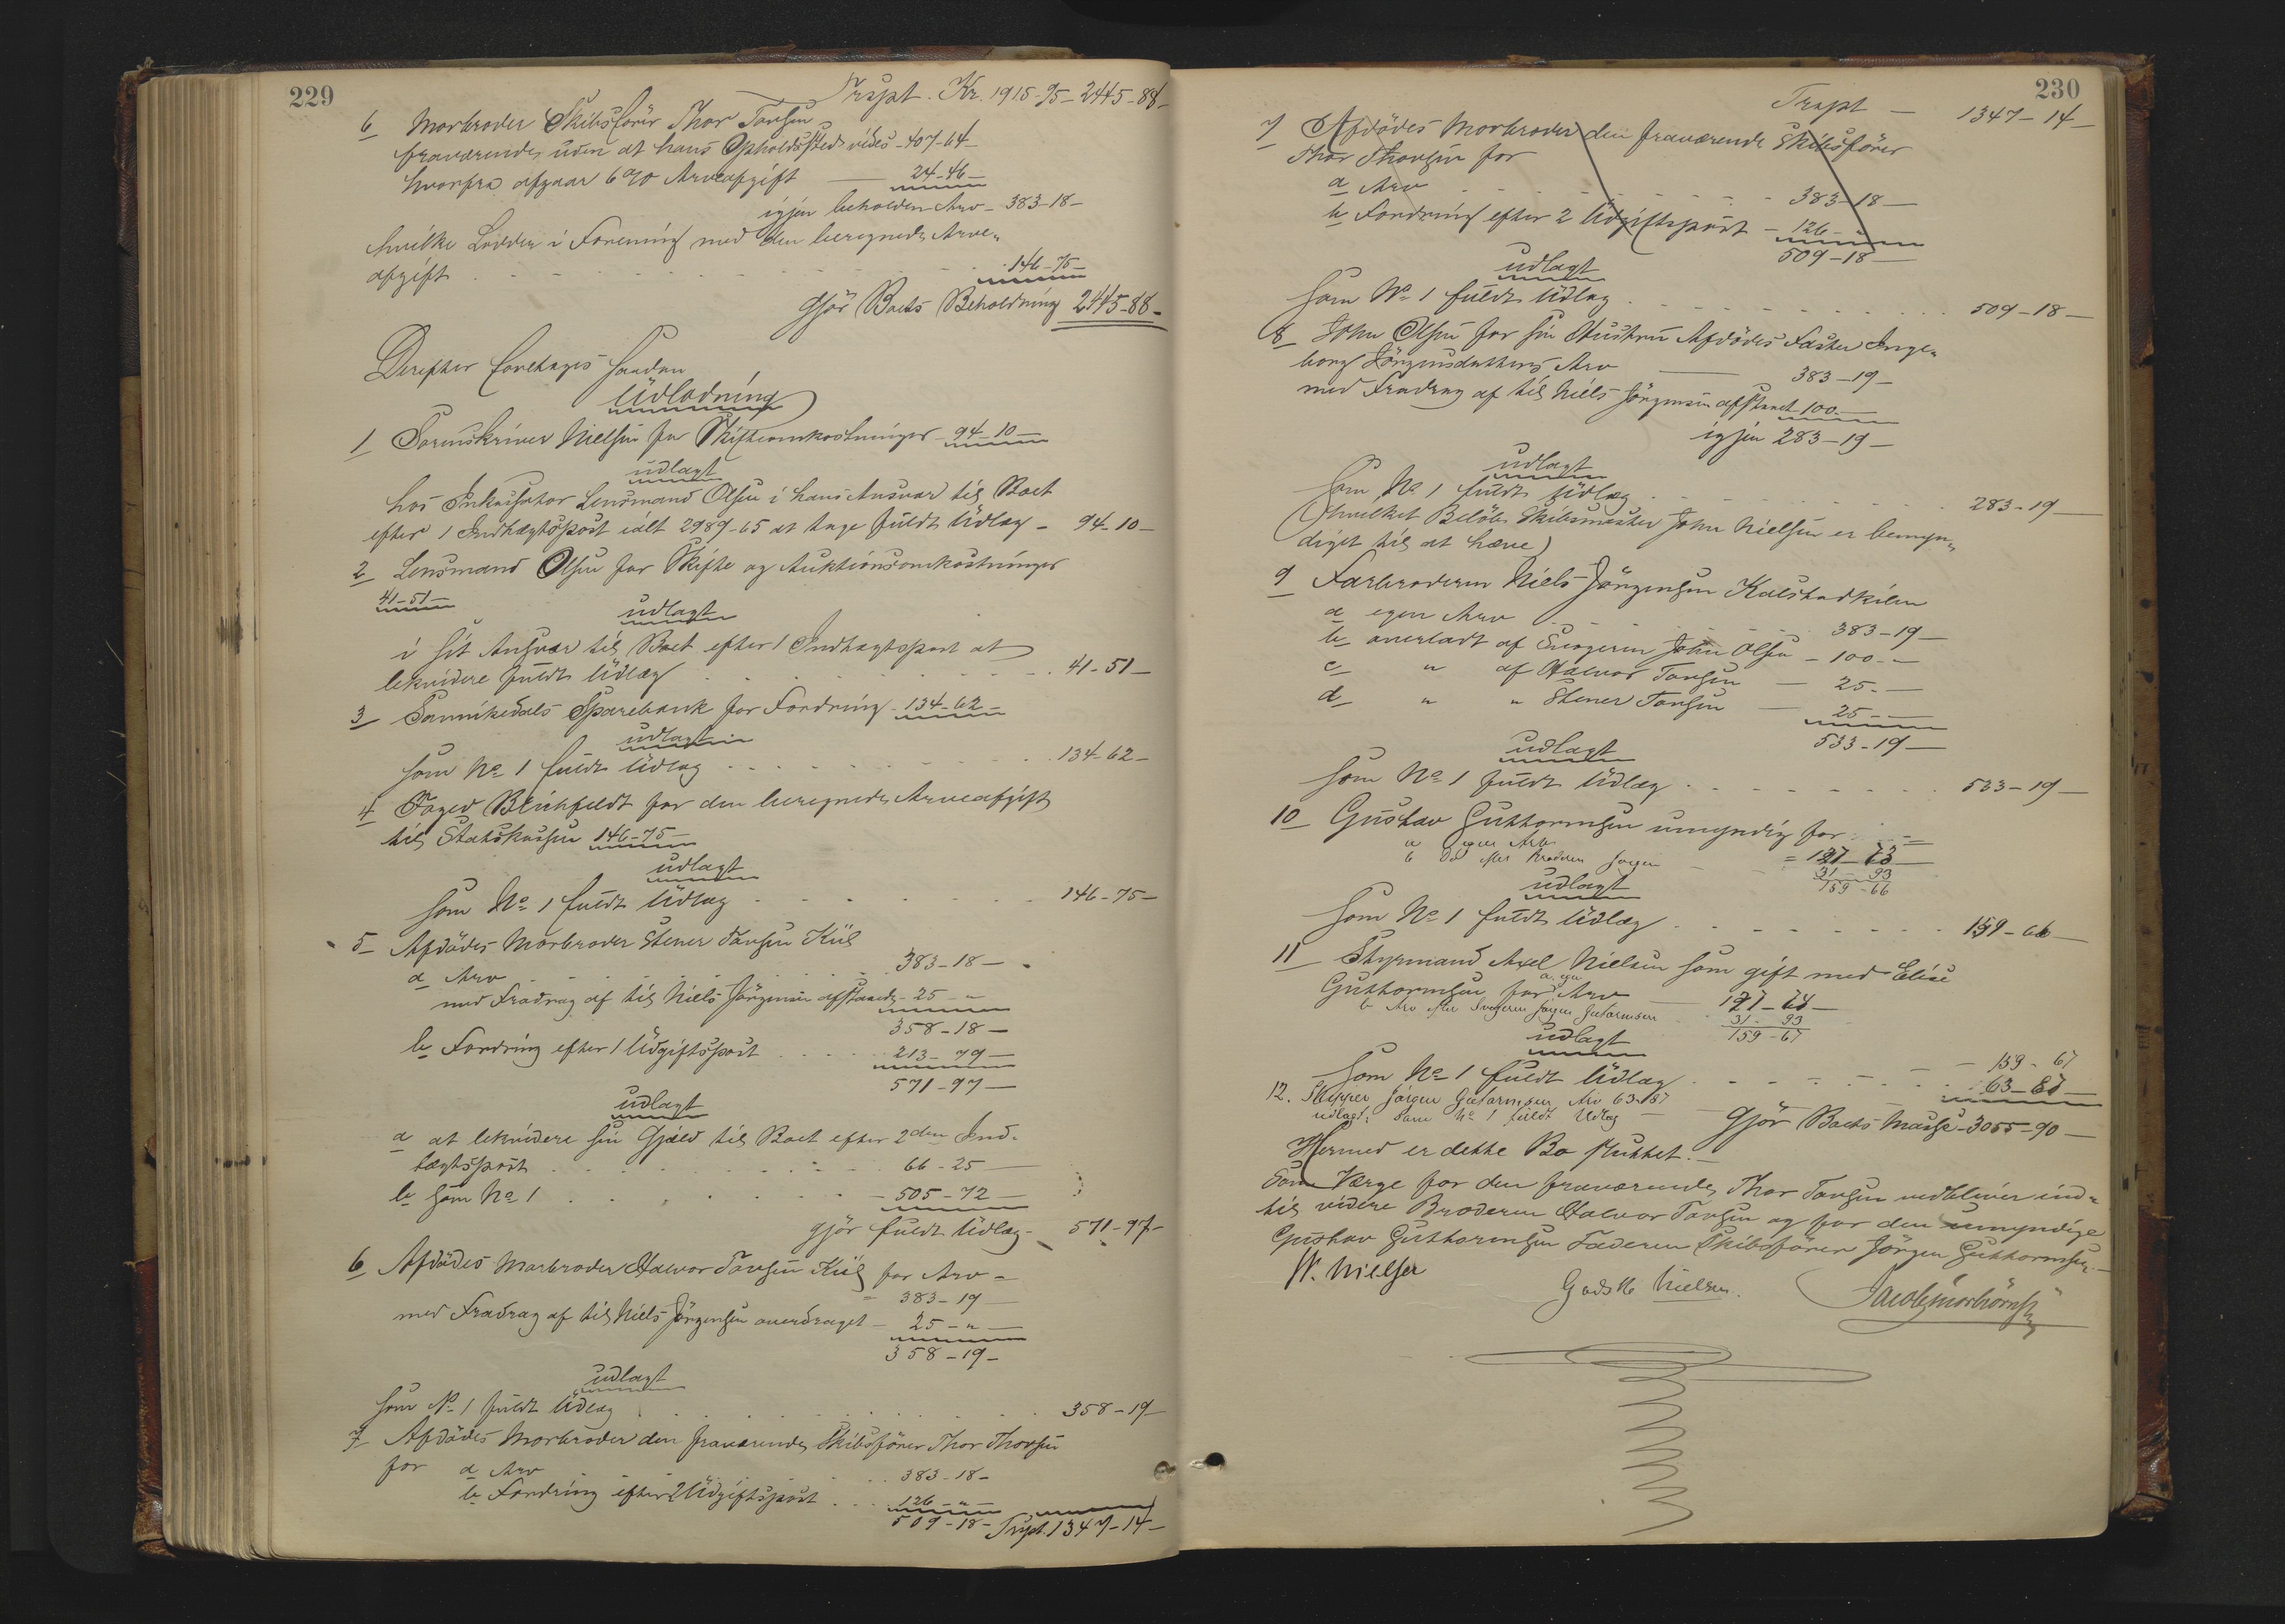 229
Trspt. Kr. 1915-95- 2445-88-
6 Morbroder Skibsfører Thor Torsen
fraværende, uden at hans Opholdssted vides - 407-64-
hvorfra afgaar 6 % Arveafgift - 24-46-
igjen beholden Arv - 383-18-
hvilke Lodder i Forening med den beregnede Arve-
afgift 146-75-
Gjør Boets Beholdning 2445-88-
Derefter foretages saadan
Udlodning
1 Sorenskriver Nielsen for Skifteomkostninger - 94-10-
udlagt
hos Inkassator Lensmand Olsen i hans Ansvar til Boet
efter 1 Indtægtspost ialt 2989-65 at tage fuldt Udlæg - 94-10-
2 Lensmand Olsen for Skifte og Auktionsomkostninger
41-51-
udlagt
i sit Ansvar til Boet efter 1 Indtægtspost at
lekvidere fuldt Udlæg 41-51-
3 Sannikedals Sparebank for Fordring - 134-62-
udlagt
som No 1 fuldt Udlæg 134-62-
4 Foged Blichfeldt for den beregnede Arveafgift
til Statskassen 146-75-
udlagt
som No 1 fuldt Udlæg 146-75-
5 Afdødes Morbroder Stener Torsen Kiil
a Arv 383-18-
med Fradrag af til Niels Jørgensen afstaaede - 25 - "
358-18-
b Fordring efter 1 Udgiftspost 213-79-
571-97-
udlagt
a at lekvidere sin Gjæld til Boet efter 2den Ind-
tægtspost 66-25-
b som No 1 - 505-72-
gjør fuldt Udlæg - 571-97-
6 Afdødes Morbroder Halvor Torsen Kiil for Arv -
- 383-19-
med Fradrag af til Niels Jørgensen overdraget - 25 - " -
358-19-
udlagt
som No 1 fuldt Udlæg 358-19-
7 Afdødes Morbroder den fraværende Skibsfører Thor Thorsen
for a Arv 383-18-
b Fordring efter 2 Udgiftspost 126 - " -
509-18- Trspt. 1347-14-
230
Trspt - 1347-14-
7 Afdødes Morbroder den fraværende Skibsfører
Thor Thorsen for
a Arv 383-18-
b Fordring efter 2 Udgiftspost - 126 - " -
509-18-
udlagt
som No 1 fuldt Udlæg 509-18-
8 John Olsen for sin Hustru Afdødes Faster Inge-
borg Jørgensdatters Arv 383-19-
med Fradrag af til Niels Jørgensen afstaaet 100 -
igjen 283-19-
udlagt
som No 1 fuldt Udlæg 283-19-
(hvilket Beløb Skibsmester John Nielsen er bemyn-
diget til at hæve)
9 Farbroderen Niels Jørgensen Kalstadkilen
a egen Arv 383-19-
b overladt af Svogeren John Olsen - 100 - -
c " af Halvor Torsen - 25 - -
d " " Stener Torsen - 25 - -
533-19-
udlagt
som No 1 fuldt Udlæg 533-19-
10 Gustav Guttormsen umyndig for
a egen Arv = 127-73-
b Do efter Broderen Jørgen 31-93
159-66
udlagt
som No 1 fuldt Udlæg 159-66-
11 Styrmand Axel Nielsen som gift med Elise
Guttormsen for a. egen Arv 127-74-
b Arv efter Svogeren Jørgen Gutormsen 31-93
159-67
udlagt
som No 1 fuldt Udlæg - 159-67
12. Skipper Jørgen Gutormsen Arv 63-87 63-87-
udlagt: som No 1 fuldt Udlæg
Gjør Boets Masse - 3055-90-
Hermed er dette Bo sluttet. -
Som Værge for den fraværende Thor Torsen vedbliver ind-
til videre Broderen Halvor Torsen og for den umyndige
Gustav Guttormsen Faderen Skibsfører Jørgen Guttormsen. -
N. Nielsen
Godsk Nielsen.